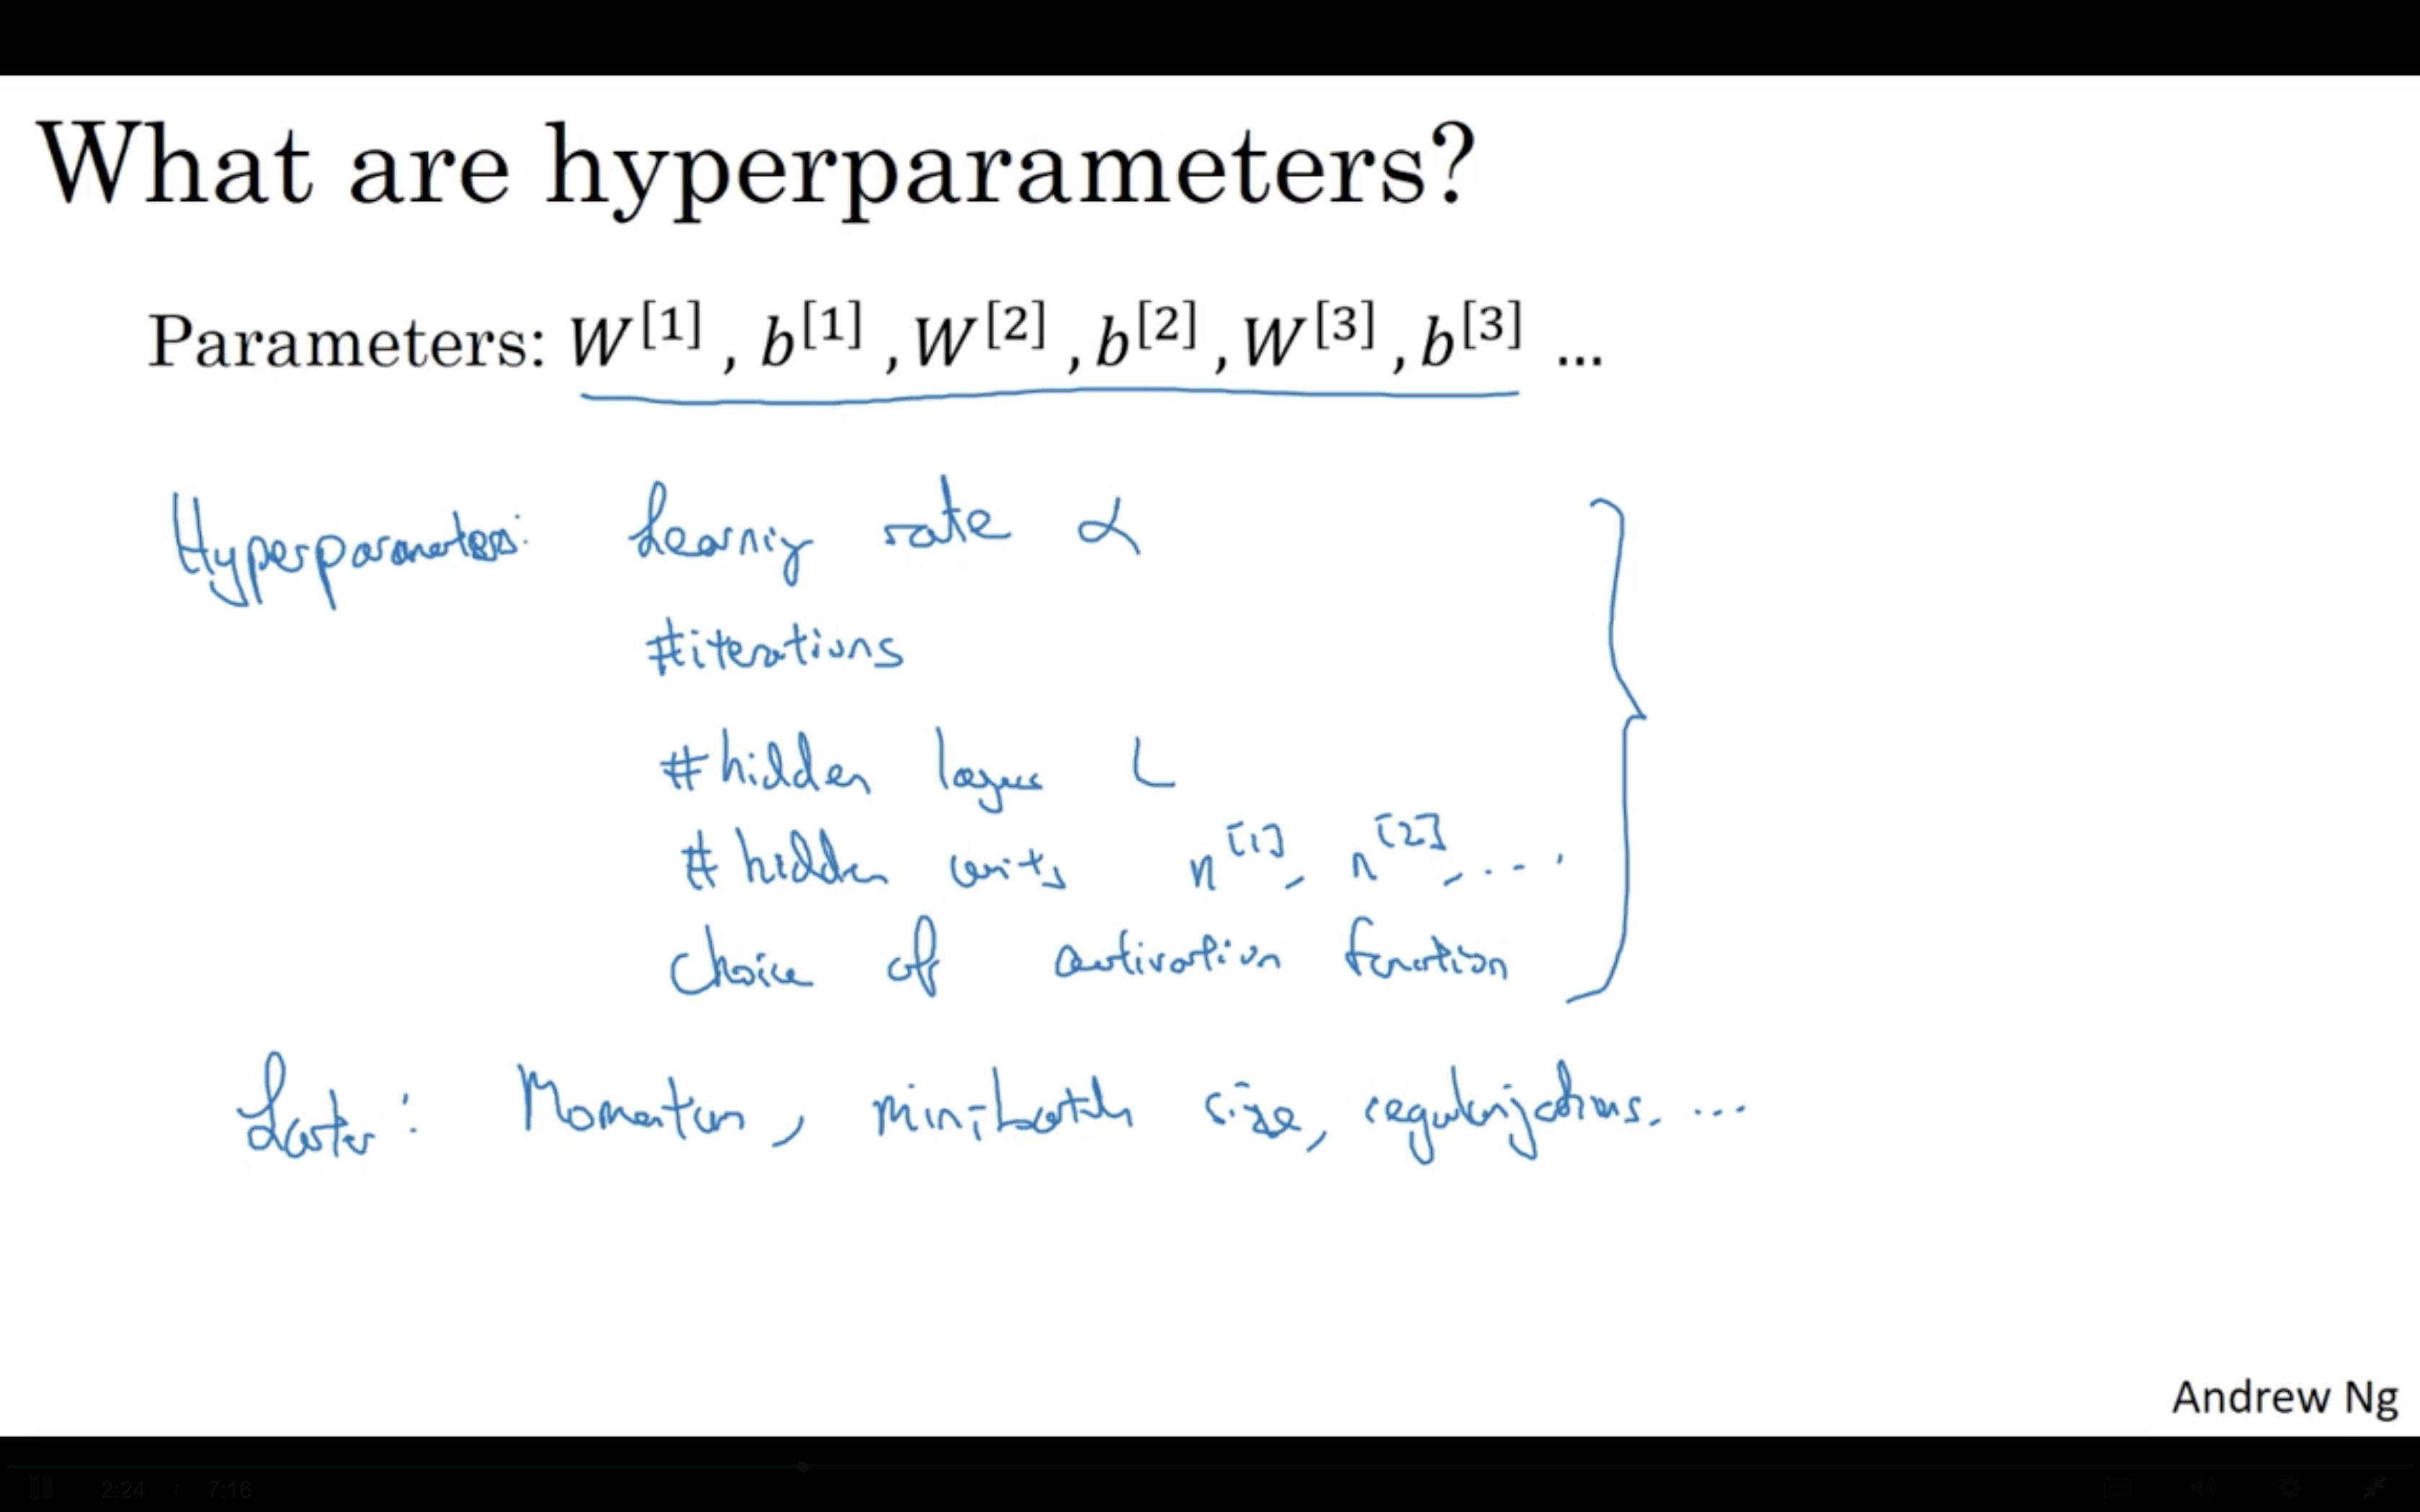 What are hyperparameters?
Parameters: W[1] , b[1] , W[2] , b[2] , W[3] , b[3] ...
Hyperparameters: Learning rate α
#iterations
#hidden layers L
#hidden units n[1], n[2], ....
Choice of activation function
Later: Momentum, mini-batch size, regularizations. ...
Andrew Ng
2:24 / 7:16